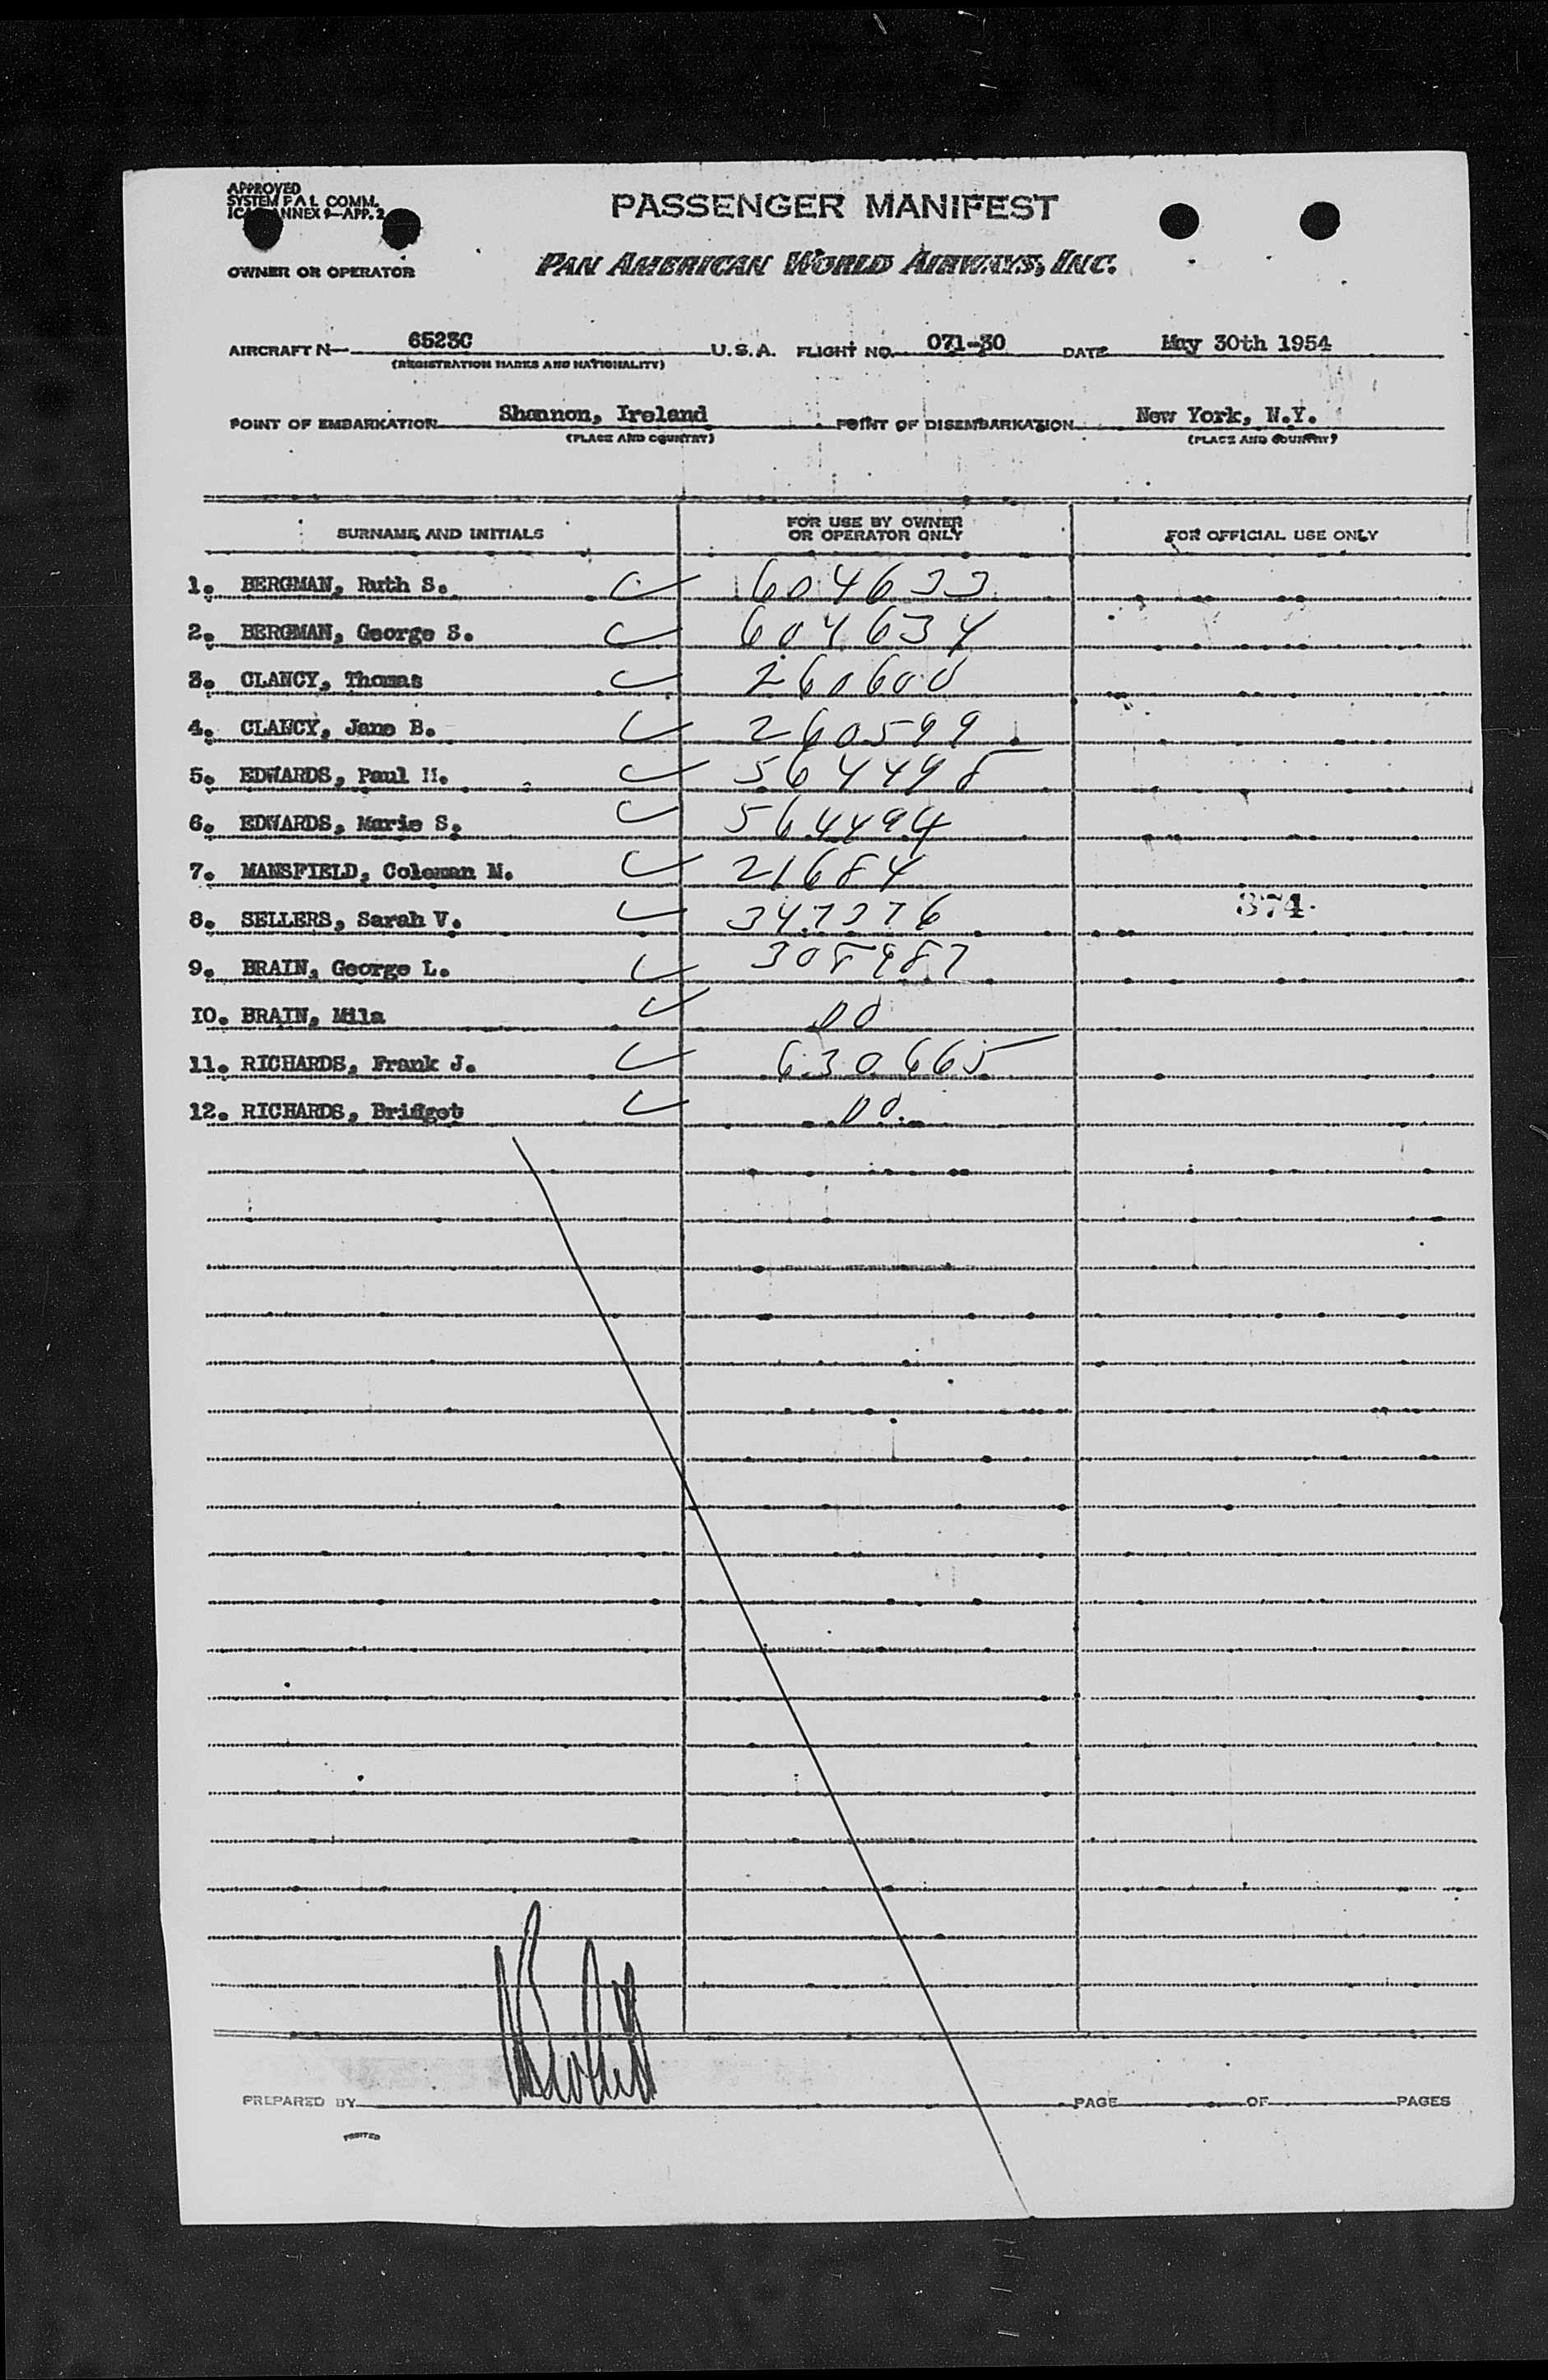 APPROVED
SYSTEM F A L COMM.
ANNEX 9—APP. 2
PASSENGER MANIFEST
OWNER OR OPERATOR
PAN AMERICAN WORLD AIRWAYS, INC.
AIRCRAFT N— 6523C U.S.A. FLIGHT NO. 071-30 DATE May 30th 1954
(REGISTRATION MARKS AND NATIONALITY)
POINT OF EMBARKATION Shannon, Ireland POINT OF DISEMBARKATION New York, N.Y.
(PLACE AND COUNTRY) (PLACE AND COUNTRY)
SURNAME AND INITIALS FOR USE BY OWNER OR OPERATOR ONLY FOR OFFICIAL USE ONLY
1. BERGMAN, Ruth S. 604633
2. BERGMAN, George S. 604634
3. CLANCY, Thomas 260600
4. CLANCY, Jane B. 260599
5. EDWARDS, Paul H. 564498
6. EDWARDS, Marie S. 564494
7. MANSFIELD, Coleman M. 21684
8. SELLERS, Sarah V. 347376 374
9. BRAIN, George L. 308987
10. BRAIN, Mila DO
11. RICHARDS, Frank J. 630665
12. RICHARDS, Bridget DO.
PREPARED BY PAGE OF PAGES